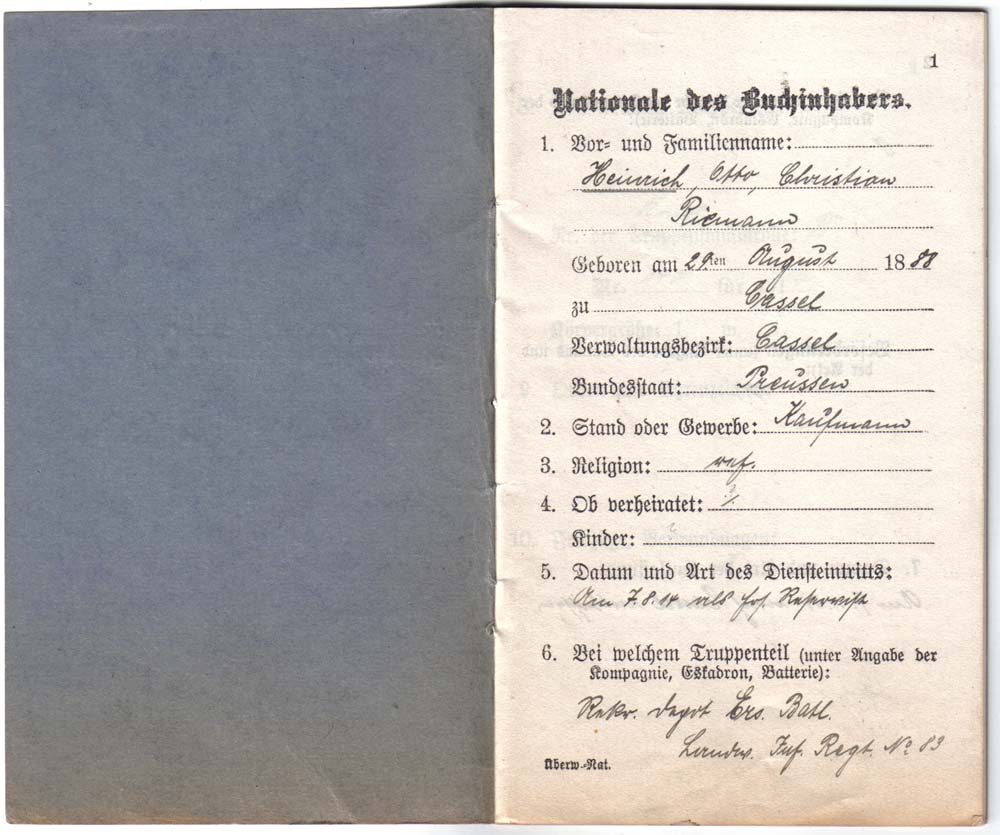 1
Nationale des Buchinhabers.
1. Vor- und Familienname:
Heinrich, Otto, Christian
Riemann
Geboren am 29ten August 1888
zu Cassel
Verwaltungsbezirk: Cassel
Bundesstaat: Preussen
2. Stand oder Gewerbe: Kaufmann
3. Religion: ref.
4. Ob verheiratet:
Kinder:
5. Datum und Art des Diensteintritts:
Am 7.8.14 als Reservist
6. Bei welchem Truppenteil (unter Angabe der
Kompagnie, Eskadron, Batterie):
Rekr. Depot Ers. Batl.
Landw. Inf. Regt. No 83
Überw.-Nat.